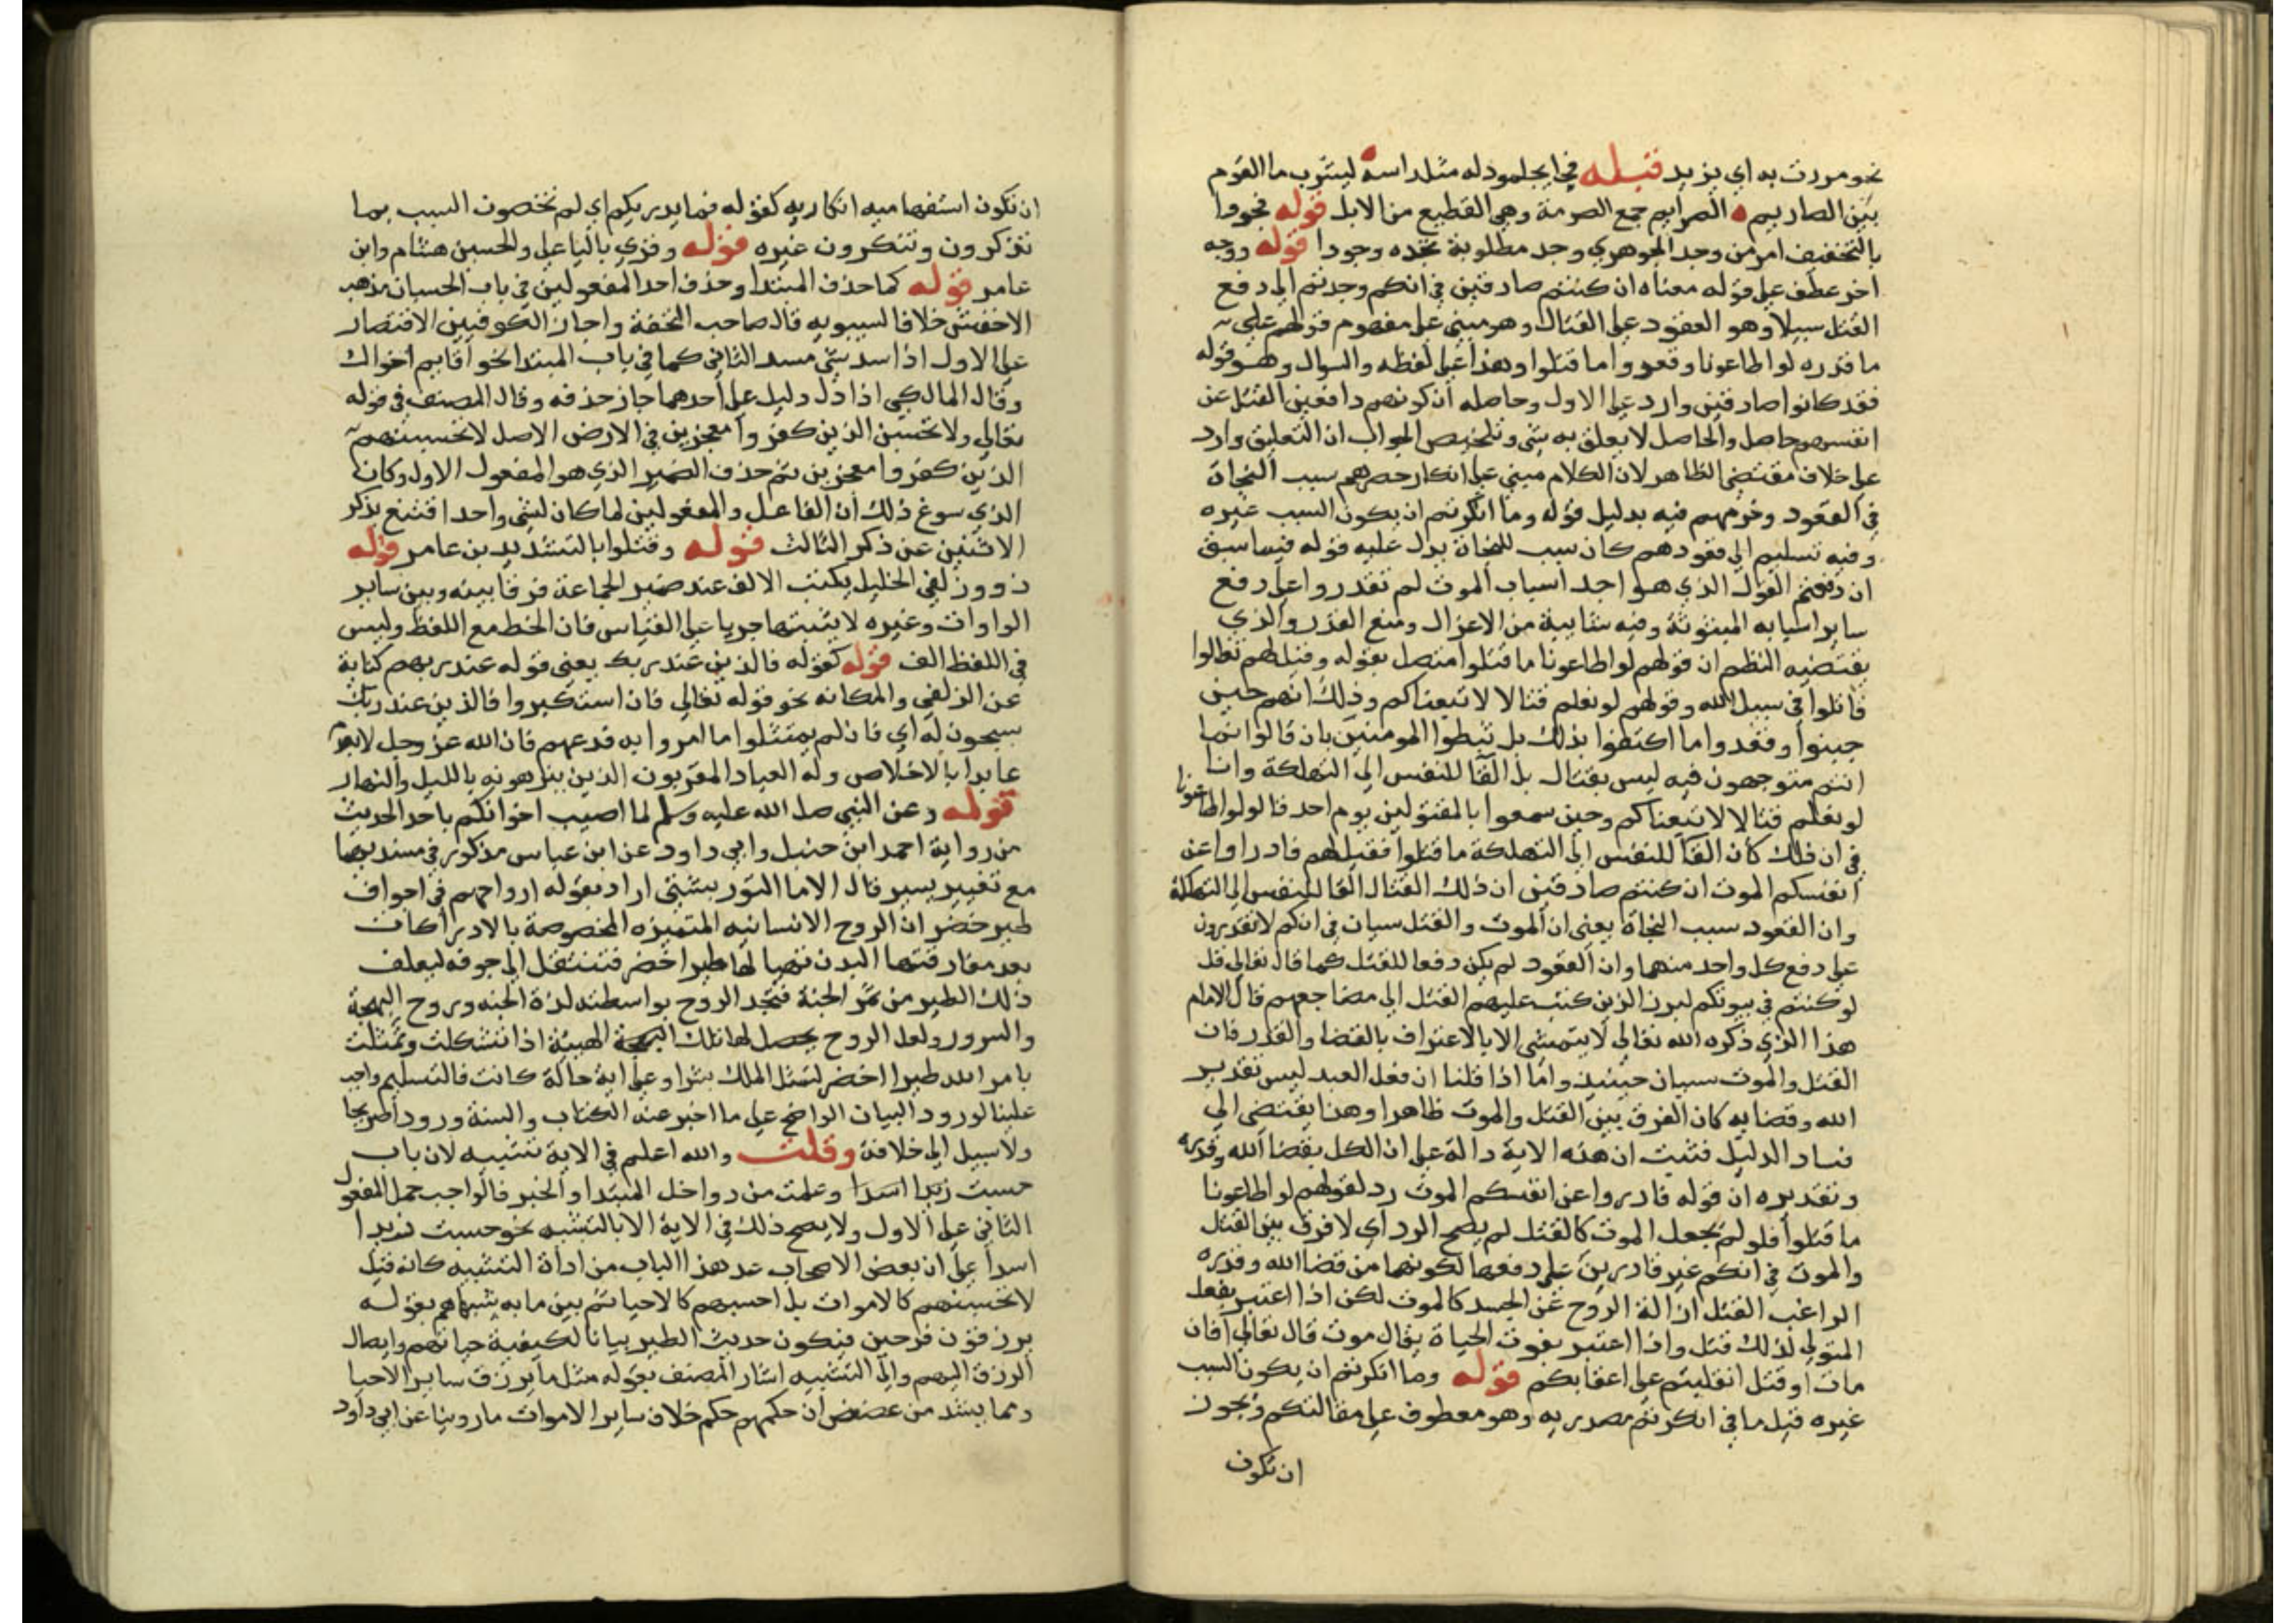 نحو مررت به اي بزيد قبله فجا بجلمود له مثل راسه ليشرب ما القوم
بين الصاريم ه الصرايم جمع الصرمة وهي القطيع من الابل قوله فجودوا
بالتخفيف امر من وجد الجوهري وجد مطلوبة يجده وجودا قوله ووجه
اخر عطف علي قوله معناه ان كنتم صادقين في انكم وجدتم الي دفع
القتل سبيلا وهو العقود علي القتال وهو مبني علي مفهوم قولهم علي
ما قدره لو اطاعونا وقعدوا ما قتلوا وهذا علي لفظه والسوال وهو قوله
فقد كانوا صادقين وارد علي الاول وحاصله ان كونهم دافعين القتل عن
انفسهم حاصل والحاصل لا يعلق به شي وتلخيص الجواب ان التعليق وارد
علي خلاف مقتضي الظاهر لان الكلام مبني علي انكار حصرهم سبب النجاة
في القعود وخرمهم فيه بدليل قوله وما انكرتم ان يكون السبب غيره
وفيه تسليم الي قعودهم كان سبب للنجاة يدل عليه قوله فيما سبق
ان دفعتم القول الذي هو احد اسباب الموت لم تقدروا علي دفع
ساير اسبابه المبثوثة وفيه شايبة من الاعزال ومنع القدر والذي
يقتضيه النظم ان قولهم لو اطاعونا ما قتلوا متصل بقوله وقيل لهم تعالوا
قاتلوا في سبيل الله وقولهم لو نعلم قتالا لا تبعناكم وذلك انهم حين
جبنوا وقعدوا ما اكتفوا بذلك بل ثبطوا المومنين بان قالوا انما
انتم متوجهون فيه ليس بقتال بل القا للنفس الي التهلكة وانا
لو نعلم قتالا لا تبعناكم وحين سمعوا بالمقتولين يوم احد قالوا لو اطاعونا
في ان ذلك كان القا للنفس الي التهلكة ما قتلوا فقيل لهم فادراوا عن
انفسكم الموت ان كنتم صادقين ان ذلك القتال القا للنفس الي التهلكة
وان القعود سبب النجاة يعني ان الموت والقتل سيان في انكم لا تقدرون
علي دفع كل واحد منهما وان القعود لم يكن دفعا للقتل كما قال تعالي قل
لو كنتم في بيوتكم لبرز الذين كتب عليهم القتل الي مضاجعهم قال الامام
هذا الذي ذكره الله تعالي لا يتمشي الا بالاعتراف بالقضا والقدر فان
القتل والموت سيان حينيذ واما اذا قلنا ان فعل العبد ليس تقدير
الله وقضايه كان الفرق بين القتل والموت ظاهرا وهذا يقتضي الي
فساد الدليل فثبت ان هذه الاية دالة علي ان الكل بقضا الله وقدره
وتقديره ان قوله فادروا عن انفسكم الموت رد لقولهم لو اطاعونا
ما قتلوا فلو لم يجعل الموت كالقتل لم يصح الرد اي لا فرق بين القتل
والموت في انكم غير قادرين علي دفعها لكونهما من قضا الله وقدره
الراغب القتل ازالة الروح عن الجسد كالموت لكن اذا اعتبر بفعل
المتولي لذلك قتل واذا اعتبر بفوت الحياة يقال موت قال تعالي افان
مات او قتل انقلبتم علي اعقابكم قوله وما انكرتم ان يكون السبب
غيره قيل ما في انكرتم مصدريه وهو معطوف علي مقالتكم ويجوز
ان تكون
ان تكون استفهاميه انكاريه كقوله فما يدريكم اي لم تختصون السبب بما
تذكرون وتنكرون غيره قوله وقري باليا علي والحسين هشام وابن
عامر قوله كما حذف المبتدا وحذف احد المفعولين في باب الحسبان مذهب
الاخفش خلافا لسيبويه قال صاحب التخفة واجاز الكوفيين الاقتصار
علي الاول اذا سد شي مسد الثاني كما في باب المبتدا نحو اقايم اخواك
وقال المالكي اذا دل دليل علي احدهما جاز حذفه وقال المصنف في قوله
تعالي ولا تحسبن الذين كفروا معجزين في الارض الاصل لا تحسبنهم
الذين كفروا معجزين ثم حذف الضمير الذي هو المفعول الاول وكان
الذي سوغ ذلك ان الفاعل والمفعولين لما كان لشي واحد اقتنع بذكر
الاثنين عن ذكر الثالث قوله وقتلوا بالتشديد بن عامر قوله
ذووزلفي الخليل يكتب الالف عند ضمير الجماعة فرقا بينه وبين ساير
الواوات وغيره لا يثبتها جريا علي القياس فان الخط مع اللفظ وليس
في اللفظ الف قوله كقوله فالذين عند ربك يعني قوله عند ربهم كناية
عن الزلفي والمكانه نحو قوله تعالي فان استكبروا فالذين عند ربك
سبحون له اي فان لم يمتثلوا ما امروا به فدعهم فان الله عز وجل لا يعدم
عابدا بالاخلاص وله العباد المقربون الذين ينزهونه بالليل والنهار
قوله وعن النبي صلي الله عليه وسلم لما اصيب اخوانكم باحد الحديث
من رواية احمد ابن حنبل وابي داود عن ابن عباس مذكور في مسنديهما
مع تغيير يسير قال الاما التوربشتي اراد بقوله ارواحهم في اجواف
طير خضر ان الروح الانسانيه المتميزه المخصوصة بالادراكات
بعد مفارقتها البدن تهيا لها طيرا خضر فتنتقل الي جوفه ليعلف
ذلك الطير من ثمر الجنة فتجد الروح بواسطته لذة الجنه وروح البهجة
والسرور ولعل الروح يحصل لها تلك البهجة الهيئة اذا تشكلت وتمثلت
بامر الله طيرا اخضر لتمثل الملك بشرا وعلي اية حالة كانت فالتسليم واجب
علينا لورود البيان الواضح علي ما اخبر عنه الكتاب والسنة ورودا صريحا
ولا سبيل الي خلافه وقلت والله اعلم في الاية تشبيه لان باب
حسبت زيدا اسدا وعلمت من دواخل المبتدا والخبر فالواجب حمل المفعول
الثاني علي الاول ولا يصح ذلك في الاية الا بالتشبه نحو حسبت زيدا
اسدا علي ان بعض الاصحاب عد هذا الباب من اداة التشبيه كانه قيل
لا تحسبنهم كالاموات بل احسبهم كالاحيا ثم بين ما به شبهاهم بقوله
يرزقون فرحين فيكون حديث الطير بيانا لكيفية حياتهم وايصال
الرزق اليهم والي التشبيه اشار المصنف بقوله مثل ما يرزق ساير الاحيا
ومما يشد من ان حكمهم حكم خلاف ساير الاموات ما روينا عن ابي داود